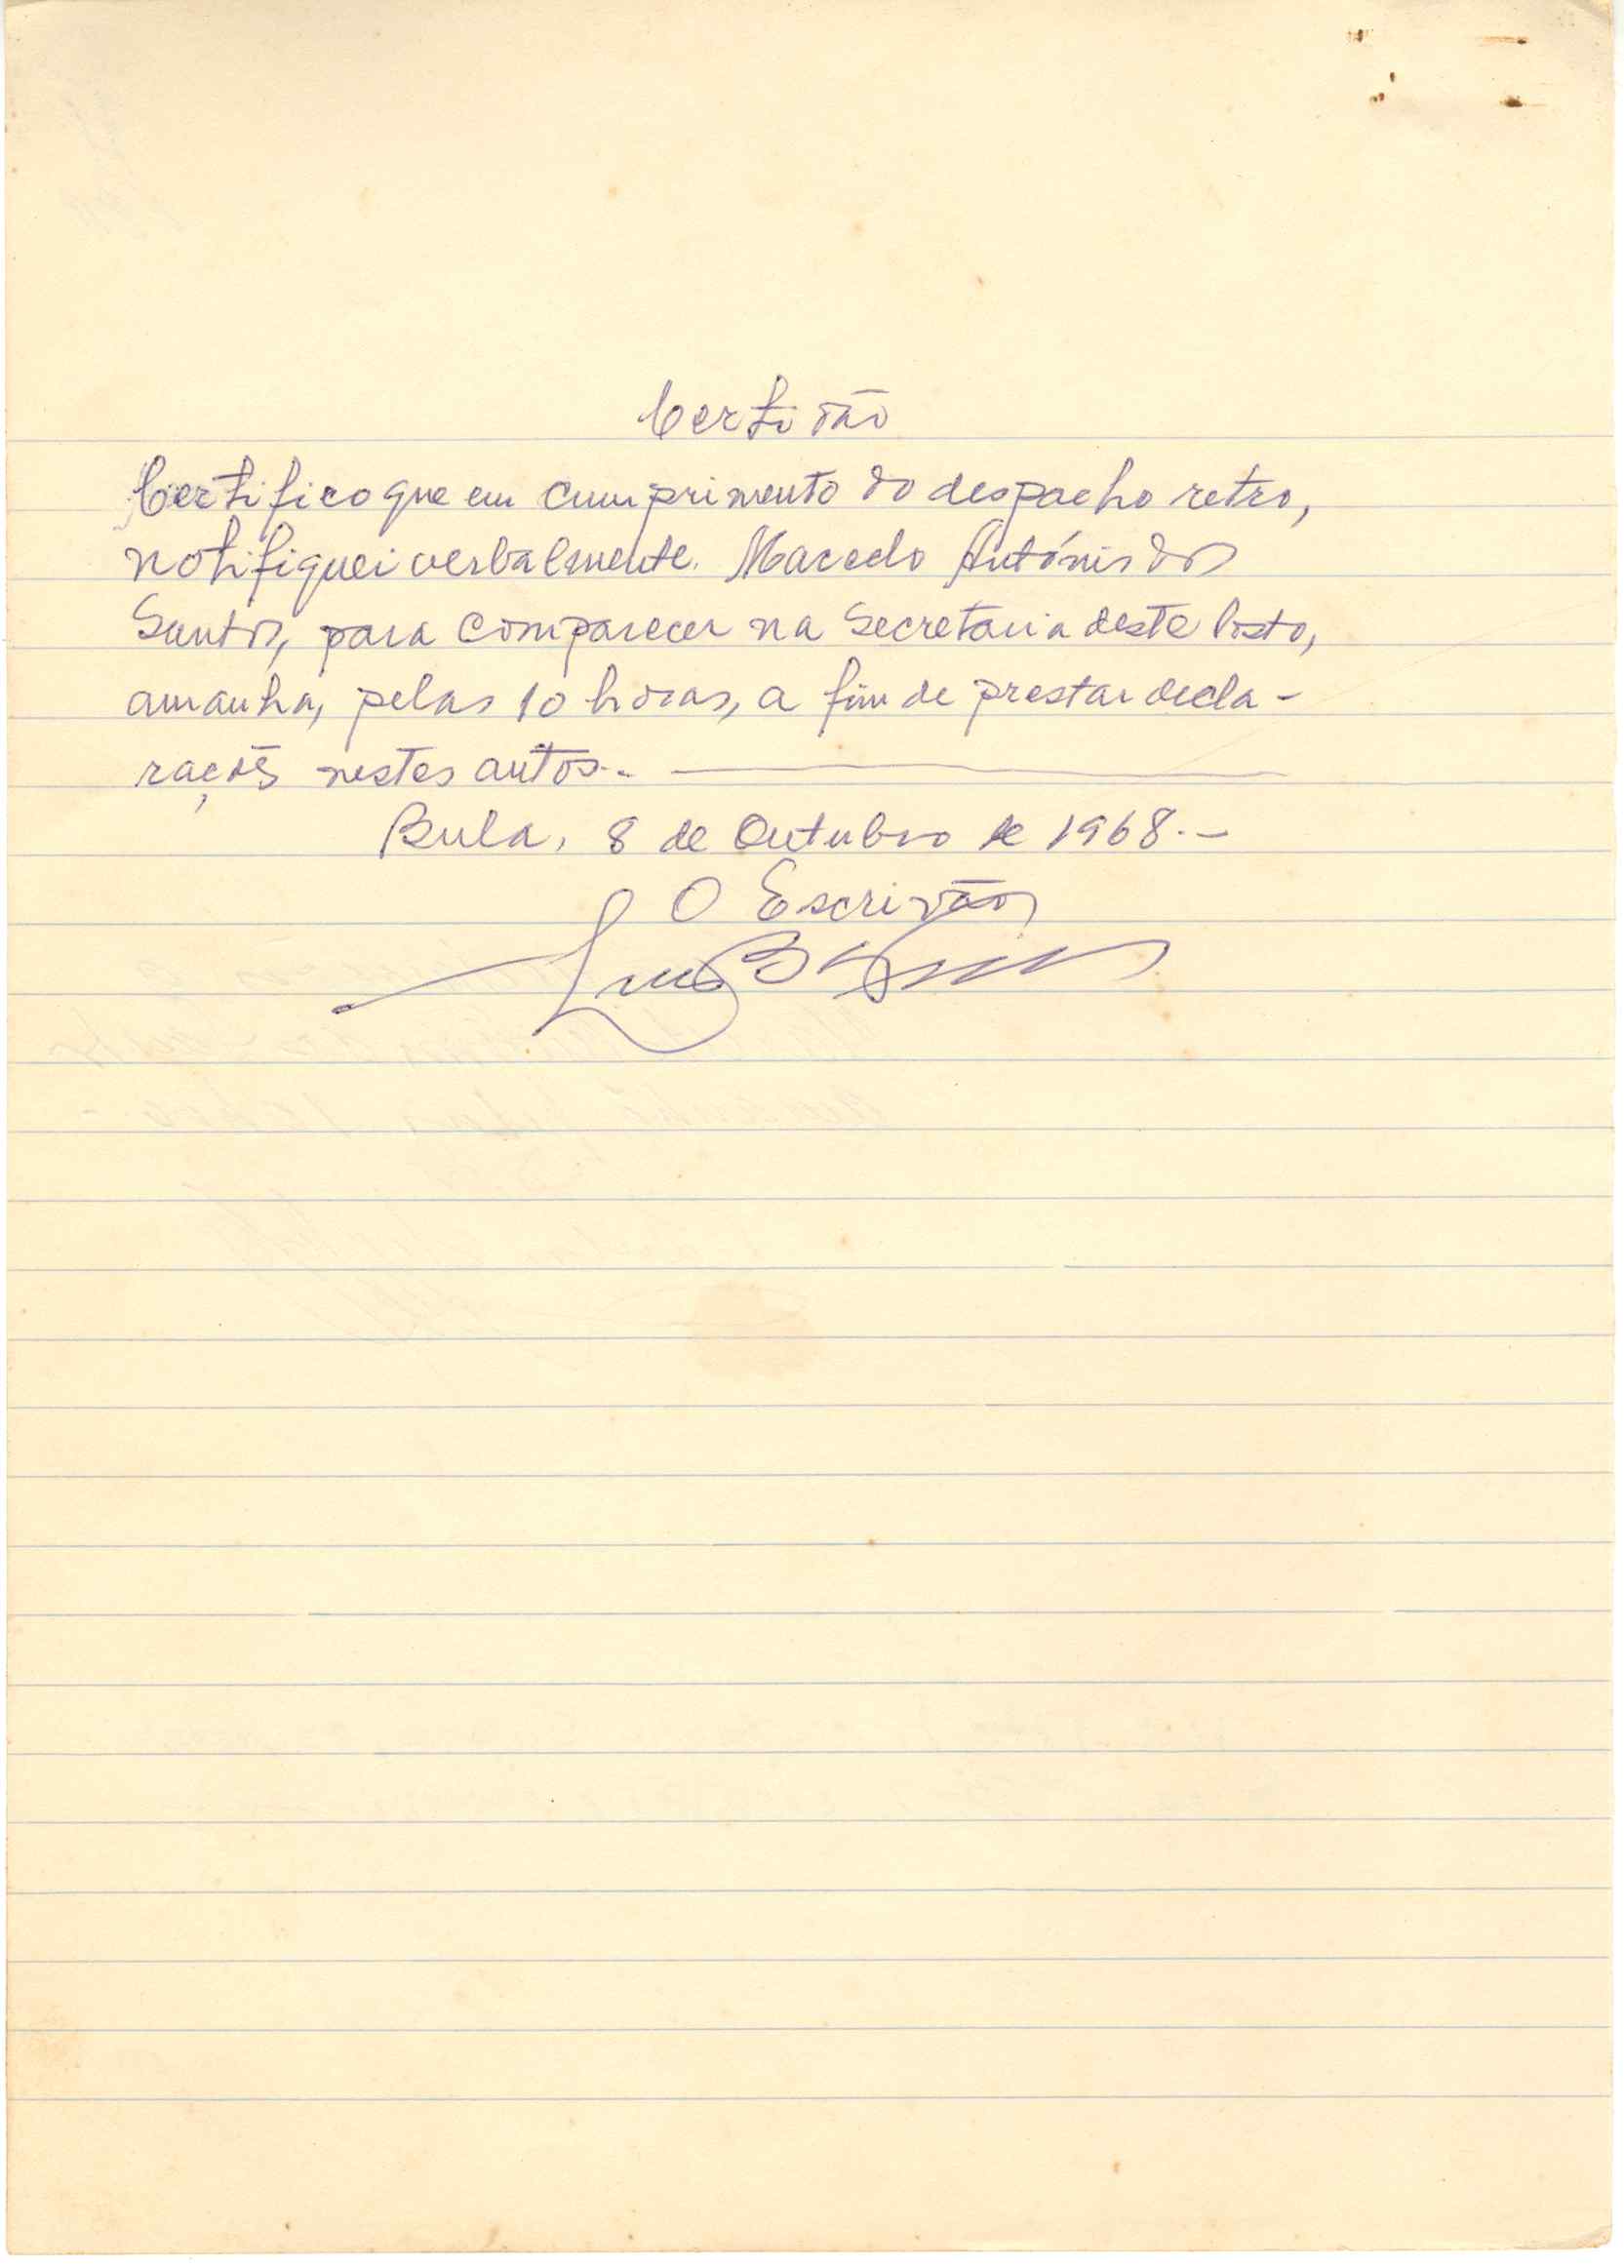 Certidão
Certifico que em cumprimento do despacho retro,
notifiquei verbalmente. Macedo António dos
Santos, para comparecer na Secretaria deste Posto,
amanhã, pelas 10 horas, a fim de prestar decla-
rações nestes autos.-
Bula, 8 de Outubro de 1968.-
O Escrivão